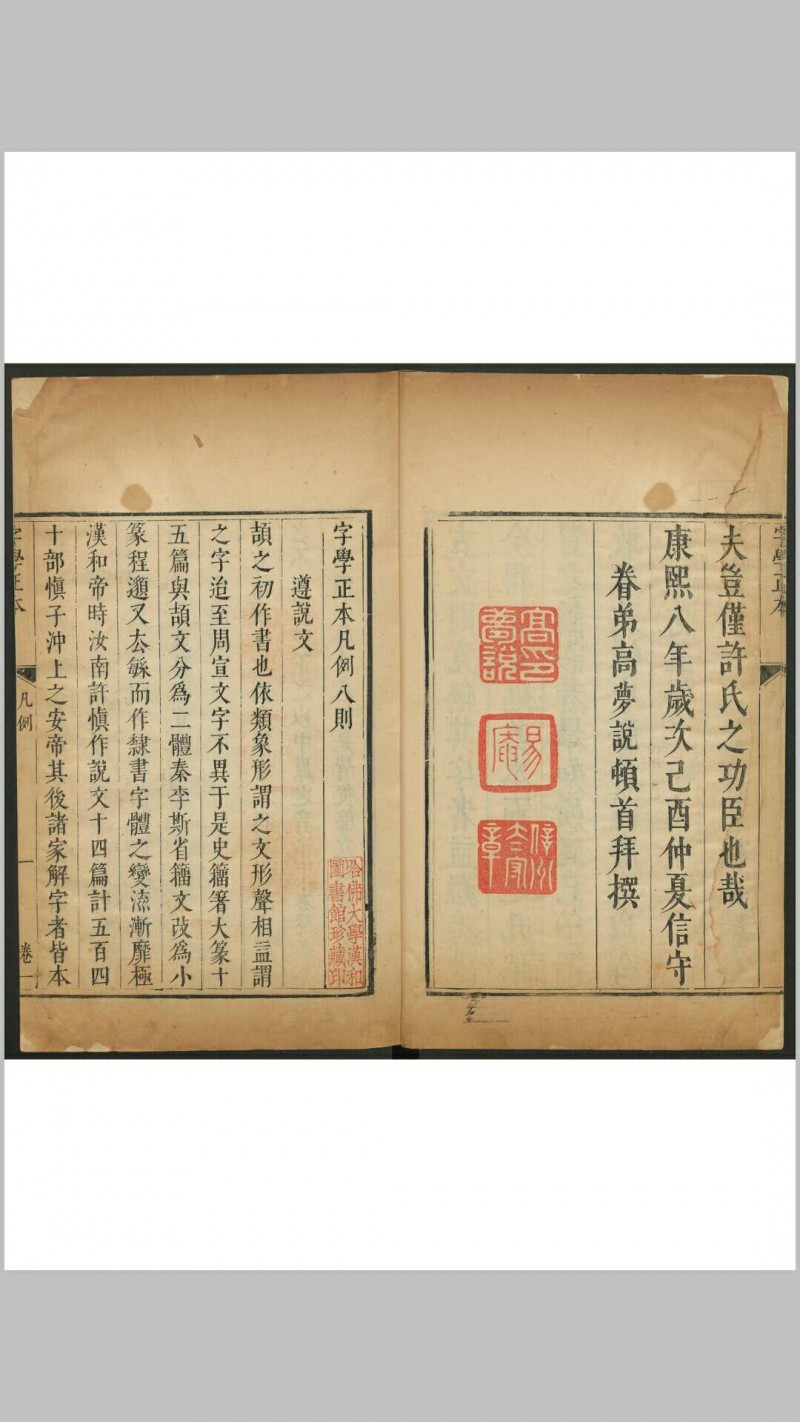 夫豈僅許氏之功臣也哉
康熙八年歲次己酉仲夏信守
眷弟高夢說頓首拜撰
高夢說印
易庵
信州太守章
字學正本凡例八則
遵說文
頡之初作書也依類象形謂之文形聲相益謂
之字迨至周宣文字不異于是史籀箸大篆十
五篇與頡文分爲二體秦李斯省籀文改爲小
篆程邈又去緐而作隸書字體之變流漸靡極
漢和帝時汝南許愼作說文十四篇計五百四
十部愼子沖上之安帝其後諸家解字者皆本
哈佛大學漢和
圖書館珍藏印
字學正本
凡例
一
卷一